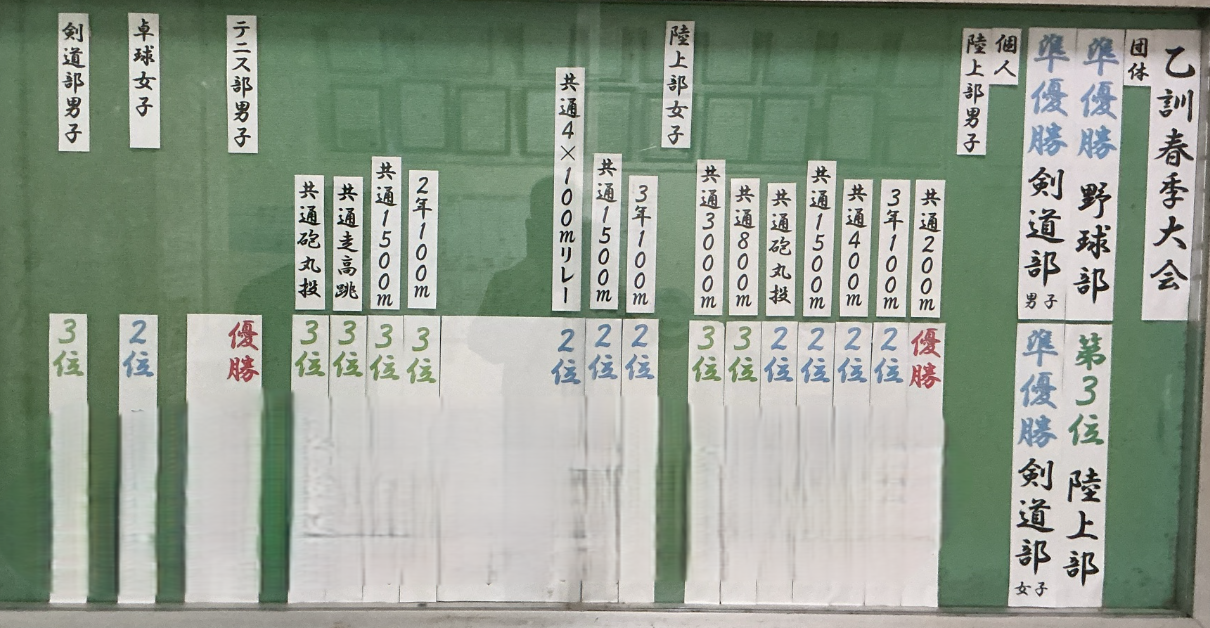 乙訓春季大会
団体
準優勝 野球部
第3位 陸上部
準優勝 剣道部男子
準優勝 剣道部女子
個人
陸上部男子
共通200m 優勝
3年100m 2位
共通400m 2位
共通1500m 2位
共通砲丸投 2位
共通800m 3位
共通3000m 3位
陸上部女子
3年100m 2位
共通1500m 2位
共通4×100mリレー 2位
2年100m 3位
共通1500m 3位
共通走高跳 3位
共通砲丸投 3位
テニス部男子
優勝
卓球女子
2位
剣道部男子
3位